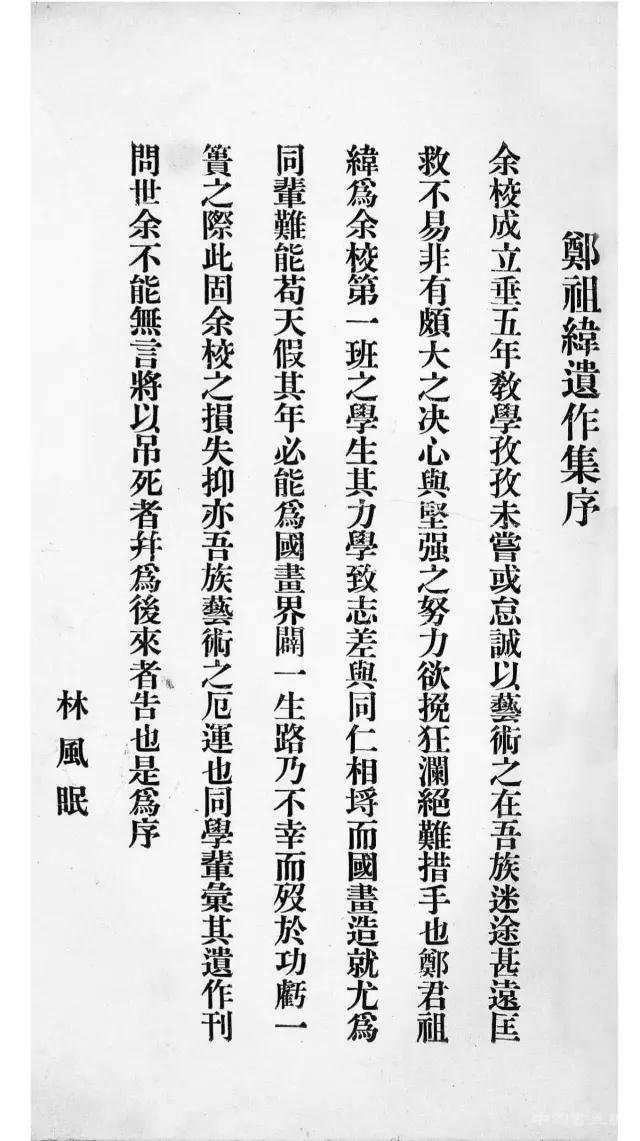 鄭祖緯遺作集序
余校成立垂五年教學孜孜未嘗或怠誠以藝術之在吾族迷途甚遠匡
救不易非有頗大之决心與堅强之努力欲挽狂瀾絕難措手也鄭君祖
緯爲余校第一班之學生其力學致志差與同仁相埒而國畫造就尤爲
同輩難能苟天假其年必能爲國畫界闢一生路乃不幸而歿於功虧一
簣之際此固余校之損失抑亦吾族藝術之厄運也同學輩彙其遺作刊
問世余不能無言將以吊死者幷爲後來者告也是爲序
林風眠